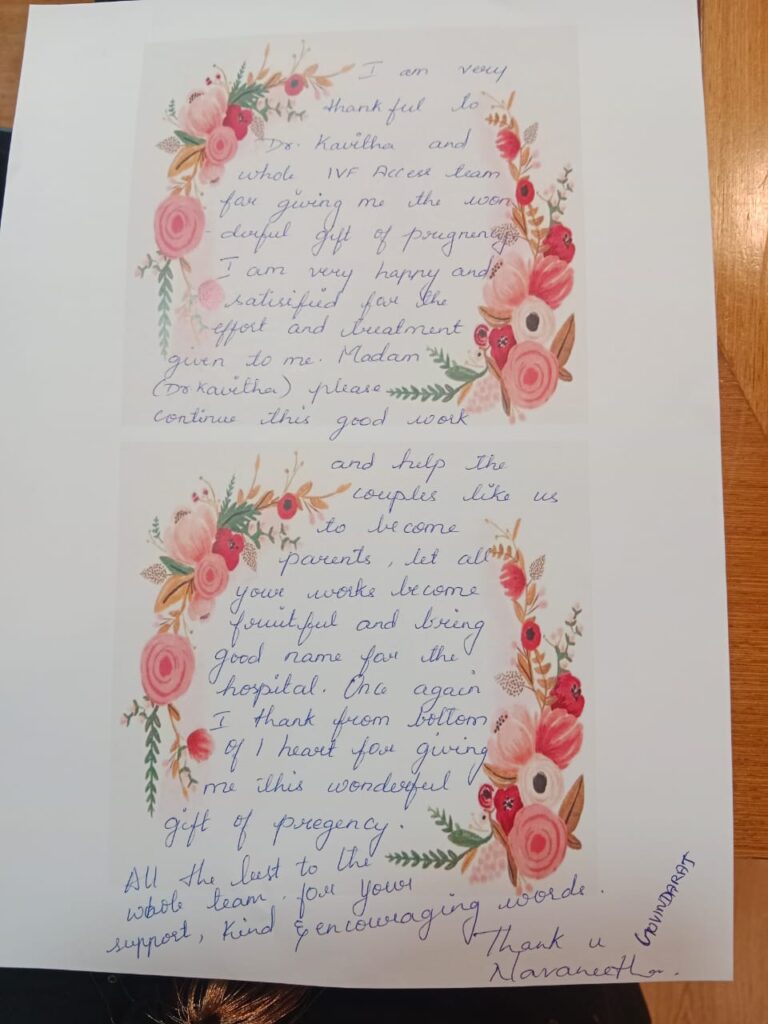 I am very
thankful to
Dr. Kavitha and
whole IVF Access team
for giving me the won
derful gift of pregnency.
I am very happy and
satisified for the
effort and treatment
given to me. Madam
(Dr Kavitha) please
continue this good work
and help the
couples like us
to become
parents, let all
your works become
fruitful and bring
good name for the
hospital. Once again
I thank from bottom
of 1 heart for giving
me this wonderful
gift of pregency.
All the best to the
whole team for your
support, kind & encouraging words.
Thank u
Navaneetha.
GOVINDARAJ